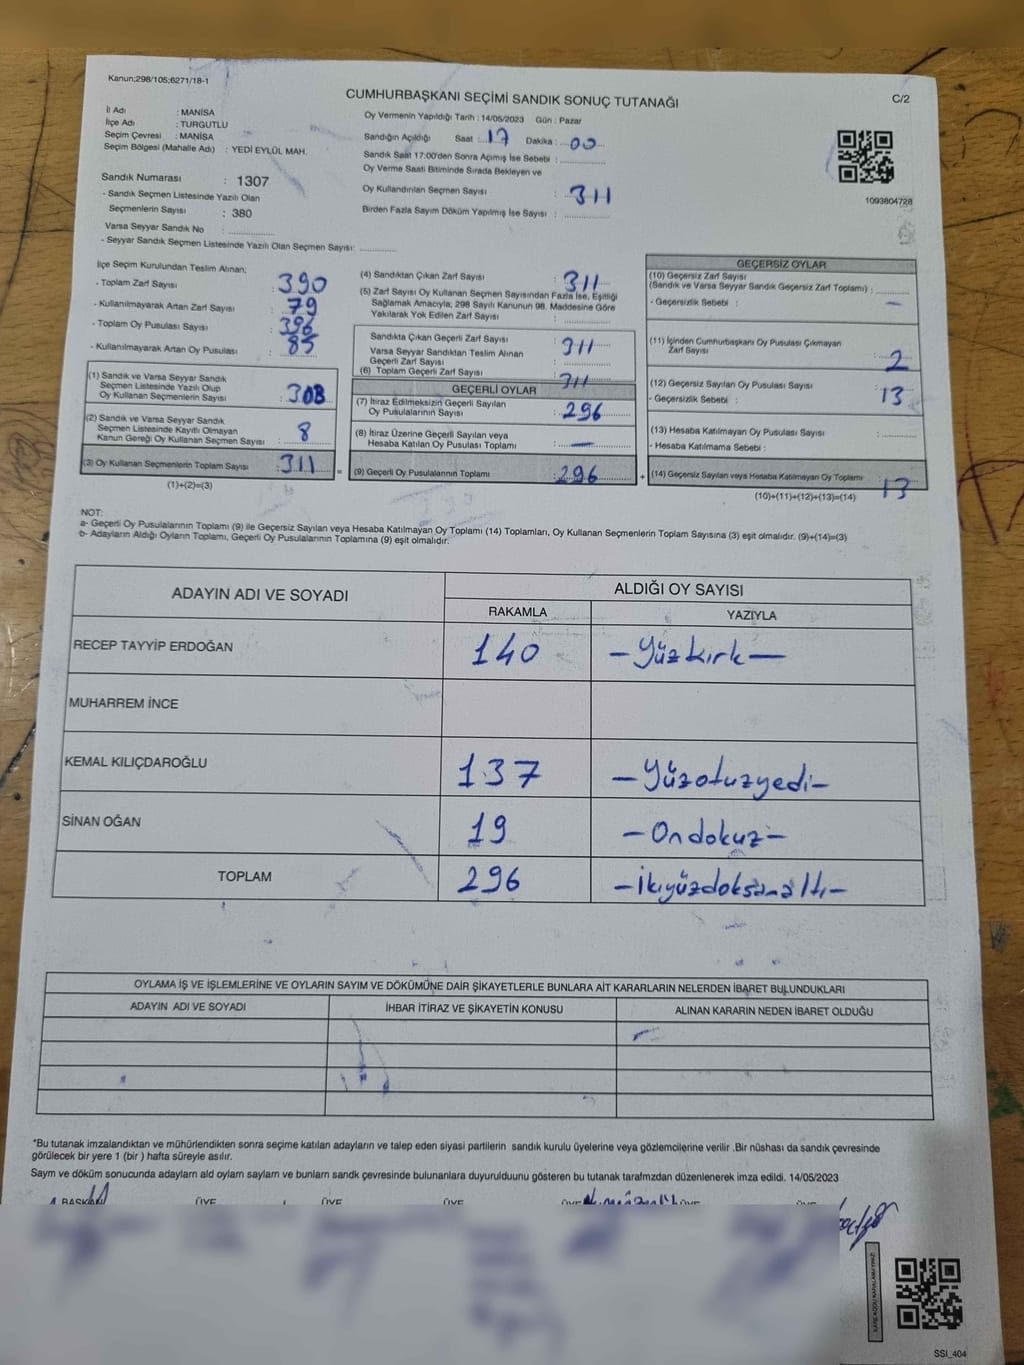 Kanun;298/105;6271/18-1
CUMHURBAŞKANI SEÇİMİ SANDIK SONUÇ TUTANAĞI
C/2
İl Adı : MANİSA
İlçe Adı : TURGUTLU
Seçim Çevresi : MANİSA
Seçim Bölgesi (Mahalle Adı) : YEDİ EYLÜL MAH.
Sandık Numarası : 1307
- Sandık Seçmen Listesinde Yazılı Olan
Seçmenlerin Sayısı : 380
Varsa Seyyar Sandık No :
- Seyyar Sandık Seçmen Listesinde Yazılı Olan Seçmen Sayısı:
Oy Vermenin Yapıldığı Tarih : 14/05/2023 Gün : Pazar
Sandığın Açıldığı Saat : 17 Dakika : 00
Sandık Saat 17:00'den Sonra Açımış İse Sebebi :
Oy Verme Saati Bitiminde Sırada Bekleyen ve
Oy Kullandırılan Seçmen Sayısı : 311
Birden Fazla Sayım Döküm Yapılmış İse Sayısı :
1093804728
İlçe Seçim Kurulundan Teslim Alınan;
- Toplam Zarf Sayısı : 390
- Kullanılmayarak Artan Zarf Sayısı : 79
- Toplam Oy Pusulası Sayısı : 396
- Kullanılmayarak Artan Oy Pusulası : 85
(1) Sandık ve Varsa Seyyar Sandık
Seçmen Listesinde Yazılı Olup
Oy Kullanan Seçmenlerin Sayısı : 308
(2) Sandık ve Varsa Seyyar Sandık
Seçmen Listesinde Kayıtlı Olmayan
Kanun Gereği Oy Kullanan Seçmen Sayısı : 8
(3) Oy Kullanan Seçmenlerin Toplam Sayısı : 311 =
(1)+(2)=(3)
(4) Sandıktan Çıkan Zarf Sayısı : 311
(5) Zarf Sayısı Oy Kullanan Seçmen Sayısından Fazla İse, Eşitliği
Sağlamak Amacıyla; 298 Sayılı Kanunun 98. Maddesine Göre
Yakılarak Yok Edilen Zarf Sayısı :
Sandıkta Çıkan Geçerli Zarf Sayısı : 311
Varsa Seyyar Sandıktan Teslim Alınan
Geçerli Zarf Sayısı :
(6) Toplam Geçerli Zarf Sayısı : 311
GEÇERLİ OYLAR
(7) İtiraz Edilmeksizin Geçerli Sayılan
Oy Pusulalarının Sayısı : 296
(8) İtiraz Üzerine Geçerli Sayılan veya
Hesaba Katılan Oy Pusulası Toplamı : —
(9) Geçerli Oy Pusulalarının Toplamı : 296 +
GEÇERSİZ OYLAR
(10) Geçersiz Zarf Sayısı
(Sandık ve Varsa Seyyar Sandık Geçersiz Zarf Toplamı) :
- Geçersizlik Sebebi : —
(11) İçinden Cumhurbaşkanı Oy Pusulası Çıkmayan
Zarf Sayısı : 2
(12) Geçersiz Sayılan Oy Pusulası Sayısı : 13
- Geçersizlik Sebebi :
(13) Hesaba Katılmayan Oy Pusulası Sayısı :
- Hesaba Katılmama Sebebi :
(14) Geçersiz Sayılan veya Hesaba Katılmayan Oy Toplamı : 13
(10)+(11)+(12)+(13)=(14)
NOT:
a- Geçerli Oy Pusulalarının Toplamı (9) ile Geçersiz Sayılan veya Hesaba Katılmayan Oy Toplamı (14) Toplamları, Oy Kullanan Seçmenlerin Toplam Sayısına (3) eşit olmalıdır. (9)+(14)=(3)
b- Adayların Aldığı Oyların Toplamı, Geçerli Oy Pusulalarının Toplamına (9) eşit olmalıdır.
ADAYIN ADI VE SOYADI
ALDIĞI OY SAYISI
RAKAMLA YAZIYLA
RECEP TAYYİP ERDOĞAN 140 -Yüzkırk-
MUHARREM İNCE
KEMAL KILIÇDAROĞLU 137 -Yüzotuzyedi-
SİNAN OĞAN 19 -Ondokuz-
TOPLAM 296 -İkiyüzdoksanaltı-
OYLAMA İŞ VE İŞLEMLERİNE VE OYLARIN SAYIM VE DÖKÜMÜNE DAİR ŞİKAYETLERLE BUNLARA AİT KARARLARIN NELERDEN İBARET BULUNDUKLARI
ADAYIN ADI VE SOYADI İHBAR İTİRAZ VE ŞİKAYETİN KONUSU ALINAN KARARIN NEDEN İBARET OLDUĞU
*Bu tutanak imzalandıktan ve mühürlendikten sonra seçime katılan adayların ve talep eden siyasi partilerin sandık kurulu üyelerine veya gözlemcilerine verilir .Bir nüshası da sandık çevresinde
görülecek bir yere 1 (bir ) hafta süreyle asılır.
Saym ve döküm sonucunda adaylarn ald oylarn saylarn ve bunlarn sandk çevresinde bulunanlara duyurulduunu gösteren bu tutanak tarafmzdan düzenlenerek imza edildi. 14/05/2023
BAŞKAN ÜYE ÜYE ÜYE ÜYE ÜYE ÜYE
SSİ_404